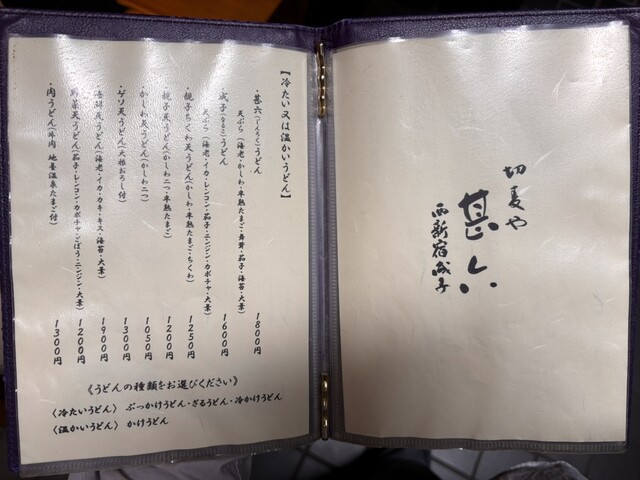 切麦や
甚六
西新宿成子
【冷たい又は温かいうどん】
・甚六(じんろく)うどん 1800円
天ぷら(海老・かしわ・半熟たまご・舞茸・茄子・海苔・大葉)
成子(なるこ)うどん 1600円
天ぷら(海老・イカ・レンコン・茄子・ニンジン・カボチャ・大葉)
・親子ちくわ天うどん(かしわ二つ・半熟たまご・ちくわ) 1250円
・親子天うどん(かしわ二つ・半熟たまご) 1200円
・かしわ天うどん(かしわ二つ) 1050円
・ゲソ天うどん(大根おろし付) 1300円
・海鮮天うどん(海老・イカ・カキ・キス・海苔・大葉) 1900円
・野菜天うどん(茄子・レンコン・カボチャ・ごぼう・ニンジン・大葉) 1200円
・肉うどん(牛肉 地養温泉たまご付) 1300円
《うどんの種類をお選びください》
〈冷たいうどん〉 ぶっかけうどん・ざるうどん・冷かけうどん
〈温かいうどん〉 かけうどん